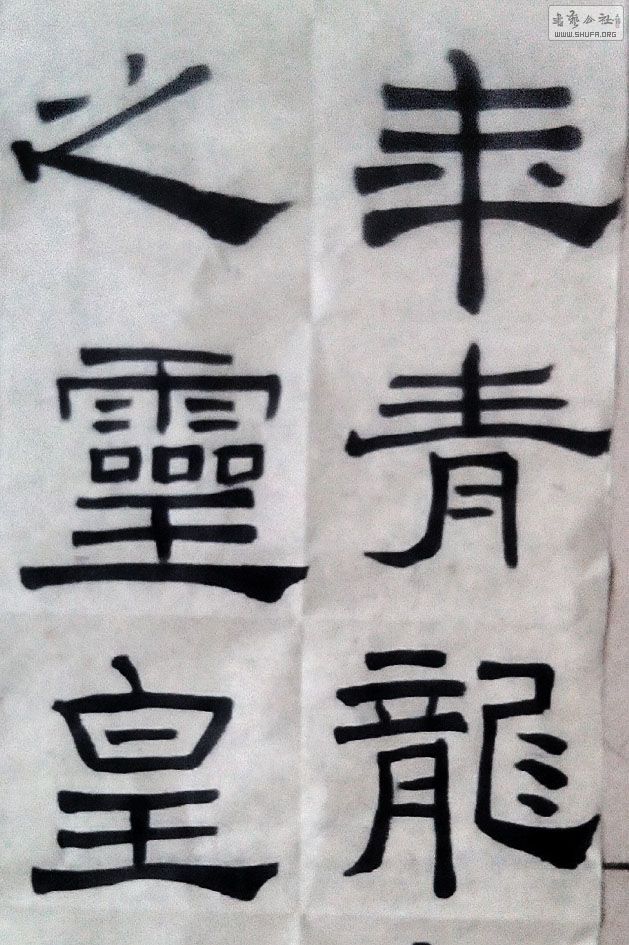 年青龍
之靈皇
書藝公社
WWW.SHUFA.ORG